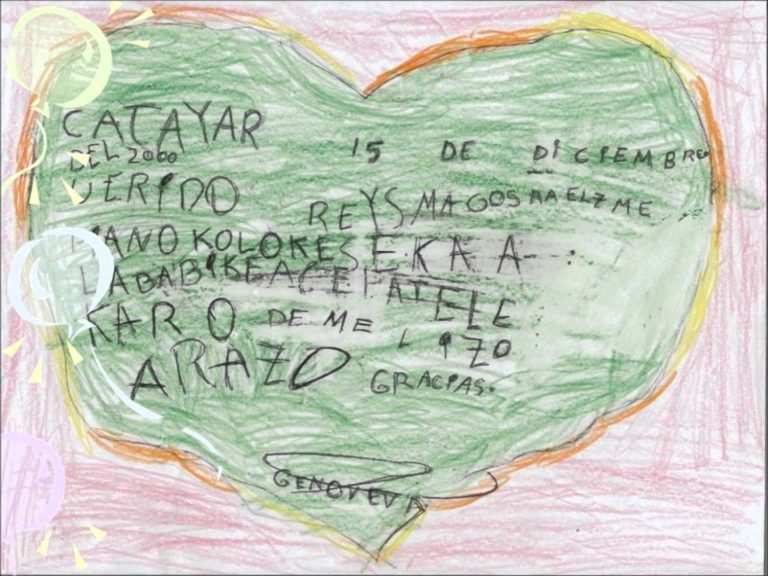 CATAYAR 15 DE DICIEMBRE
DEL 2000
UERIDO REYS MAGOS
MANO KOLOKE SEKA A
LABABIKEACE
KARO DE ME
ARAZO GRACIAS.
GENOVEVA